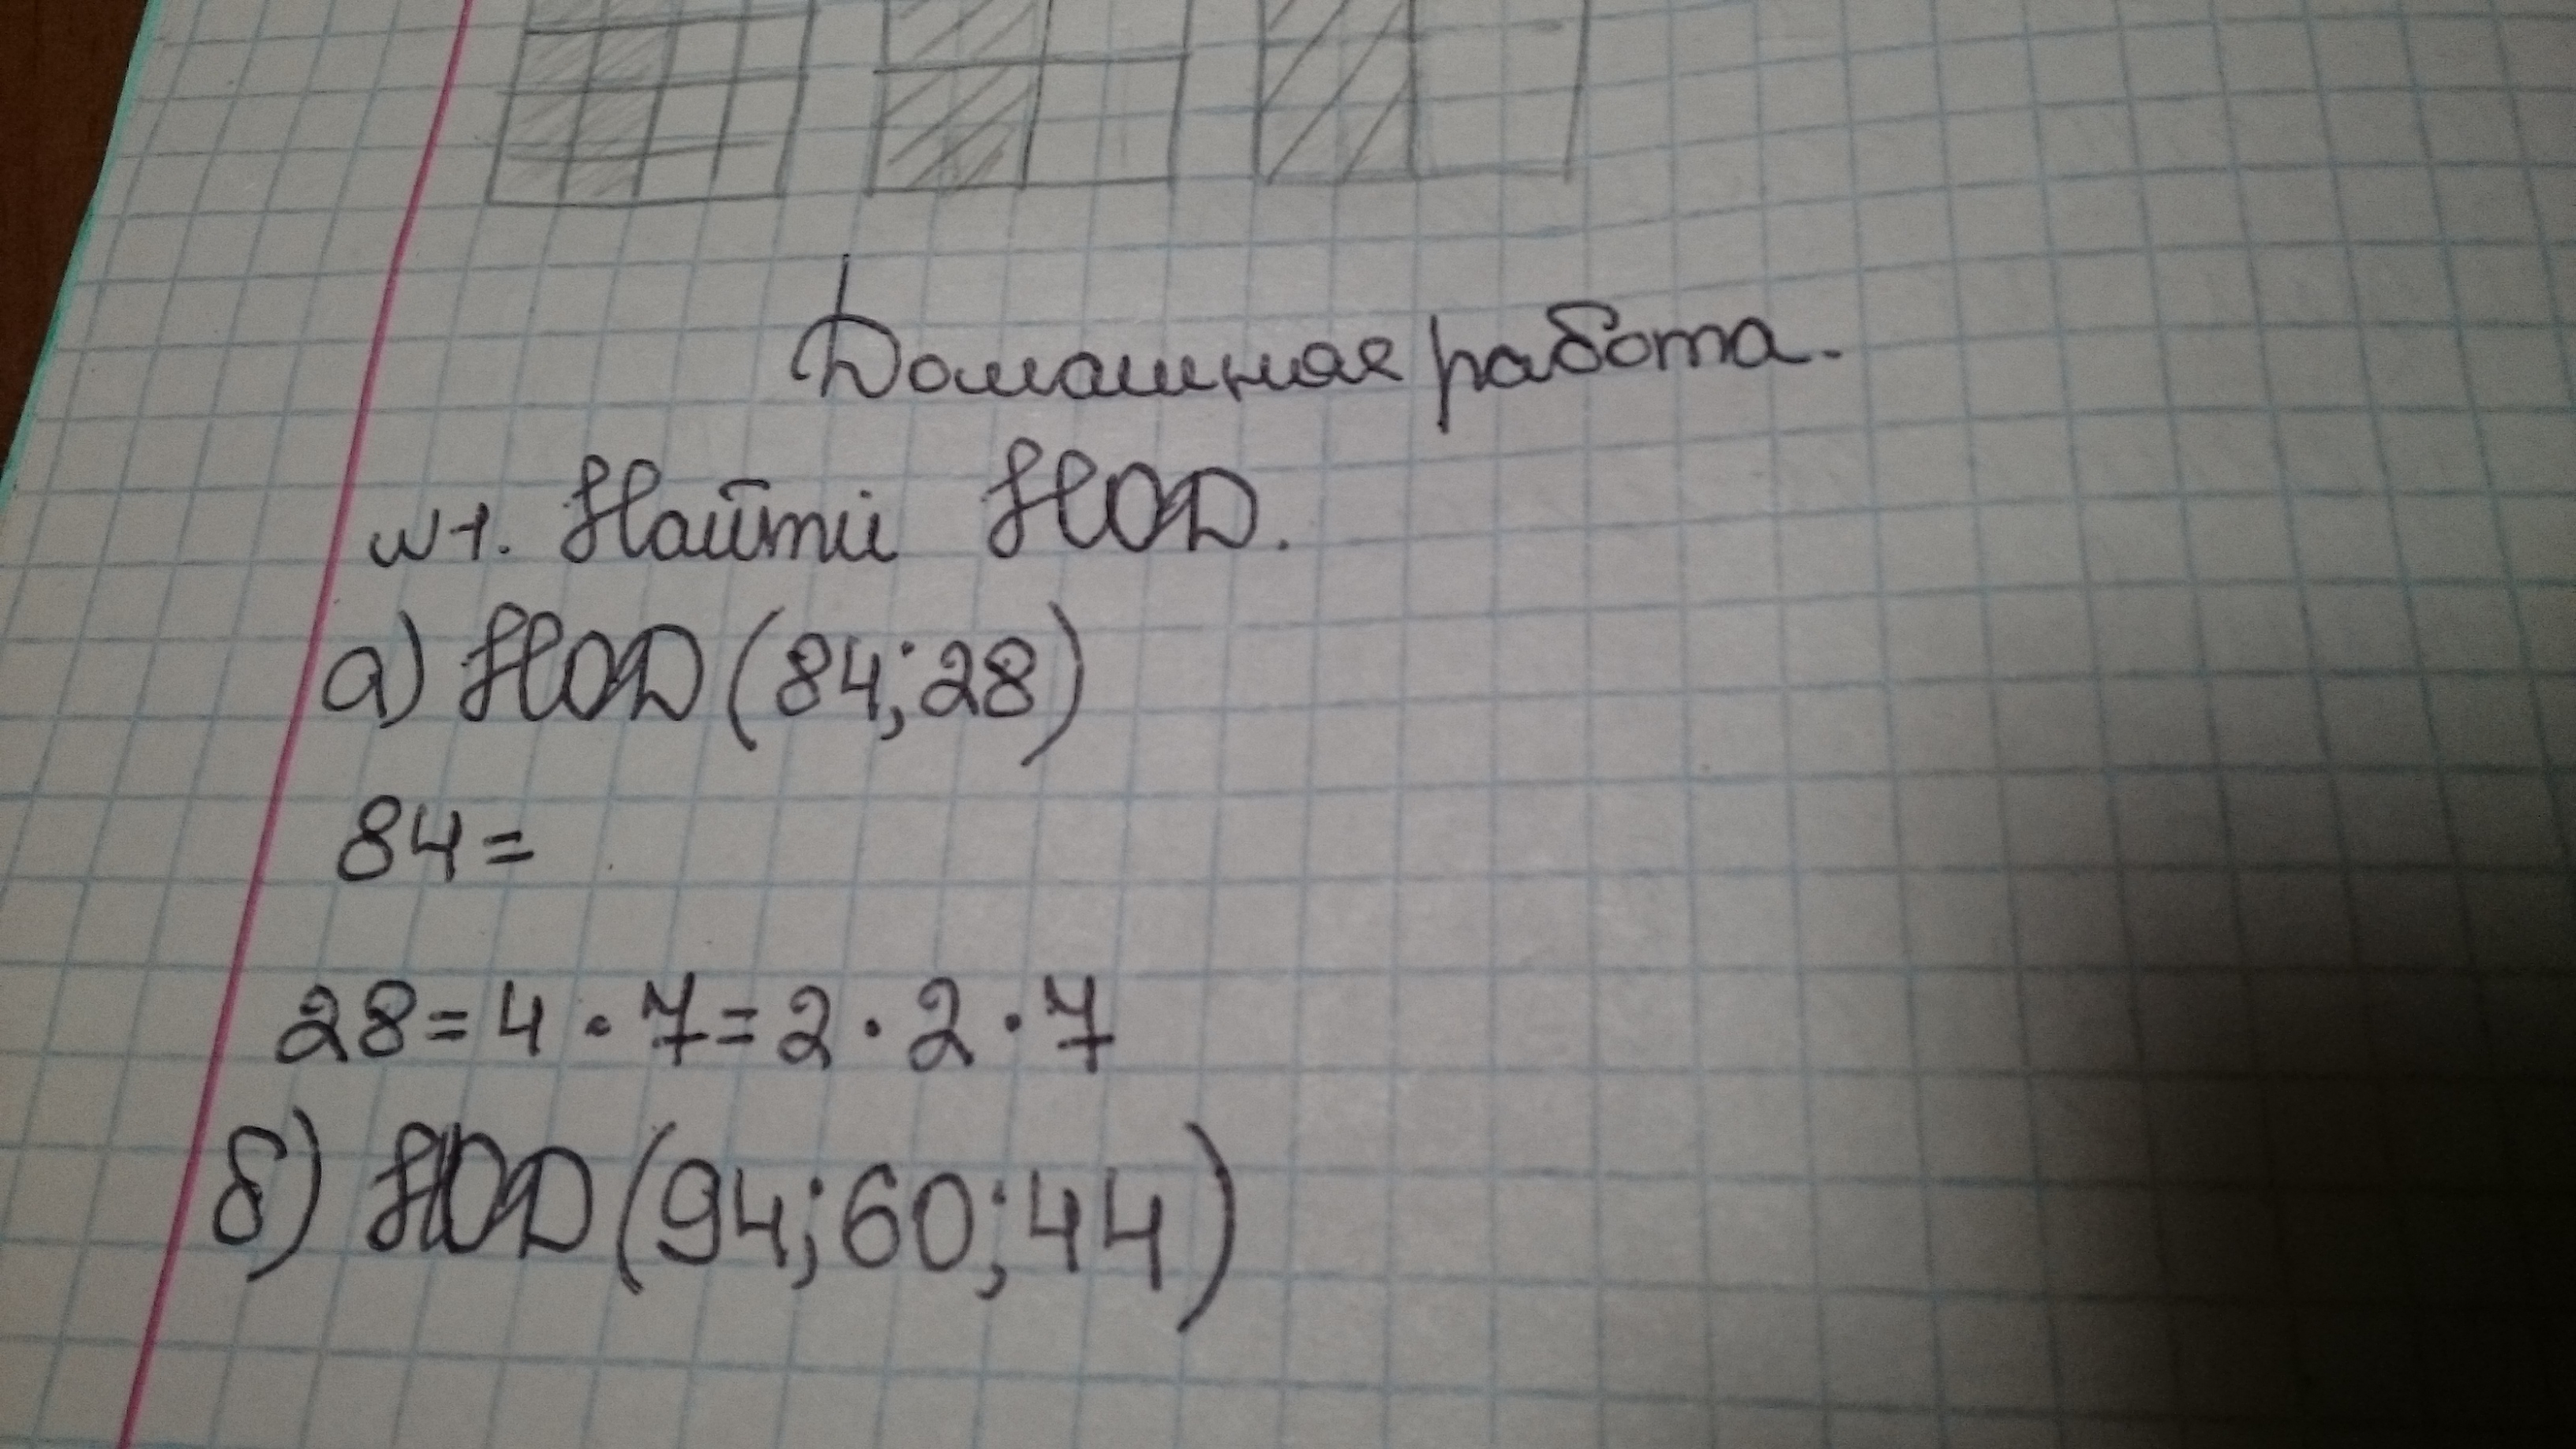 Домашная работа.
№1. Найти НОД.
а) НОД (84; 28)
84=
28=4·7=2·2·7
б) НОД (94; 60; 44)